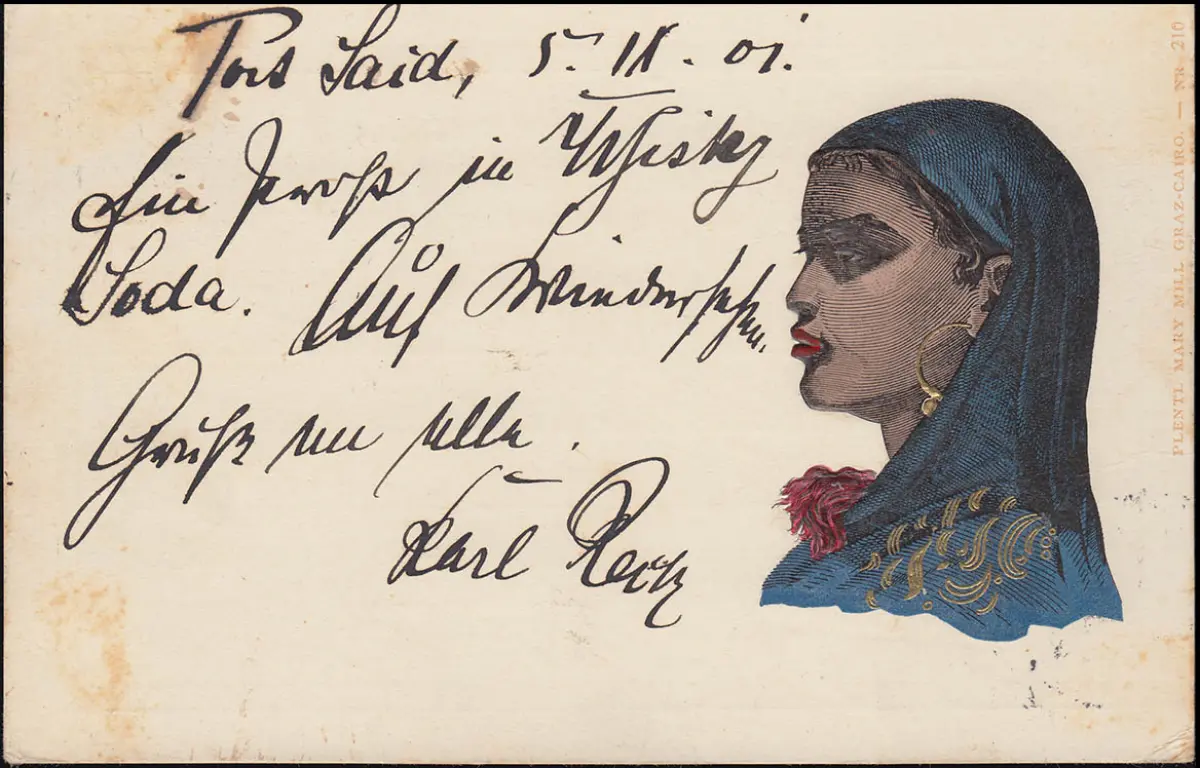 Port Said, 5. IX. 01.
Ein Prost in Whisky
Soda. Auf Wiedersehen.
Gruß an alle.
Karl
PLENTL MARY MILL GRAZ-CAIRO. — NR 210